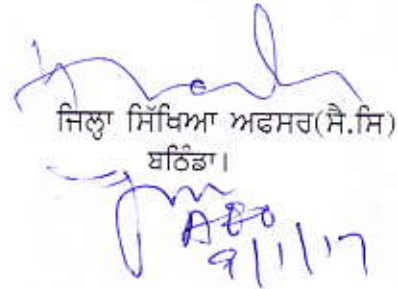 ਜਿਲ੍ਹਾ ਸਿੱਖਿਆ ਅਫਸਰ(ਸੈ.ਸਿ)
ਬਠਿੰਡਾ।
9/1/17